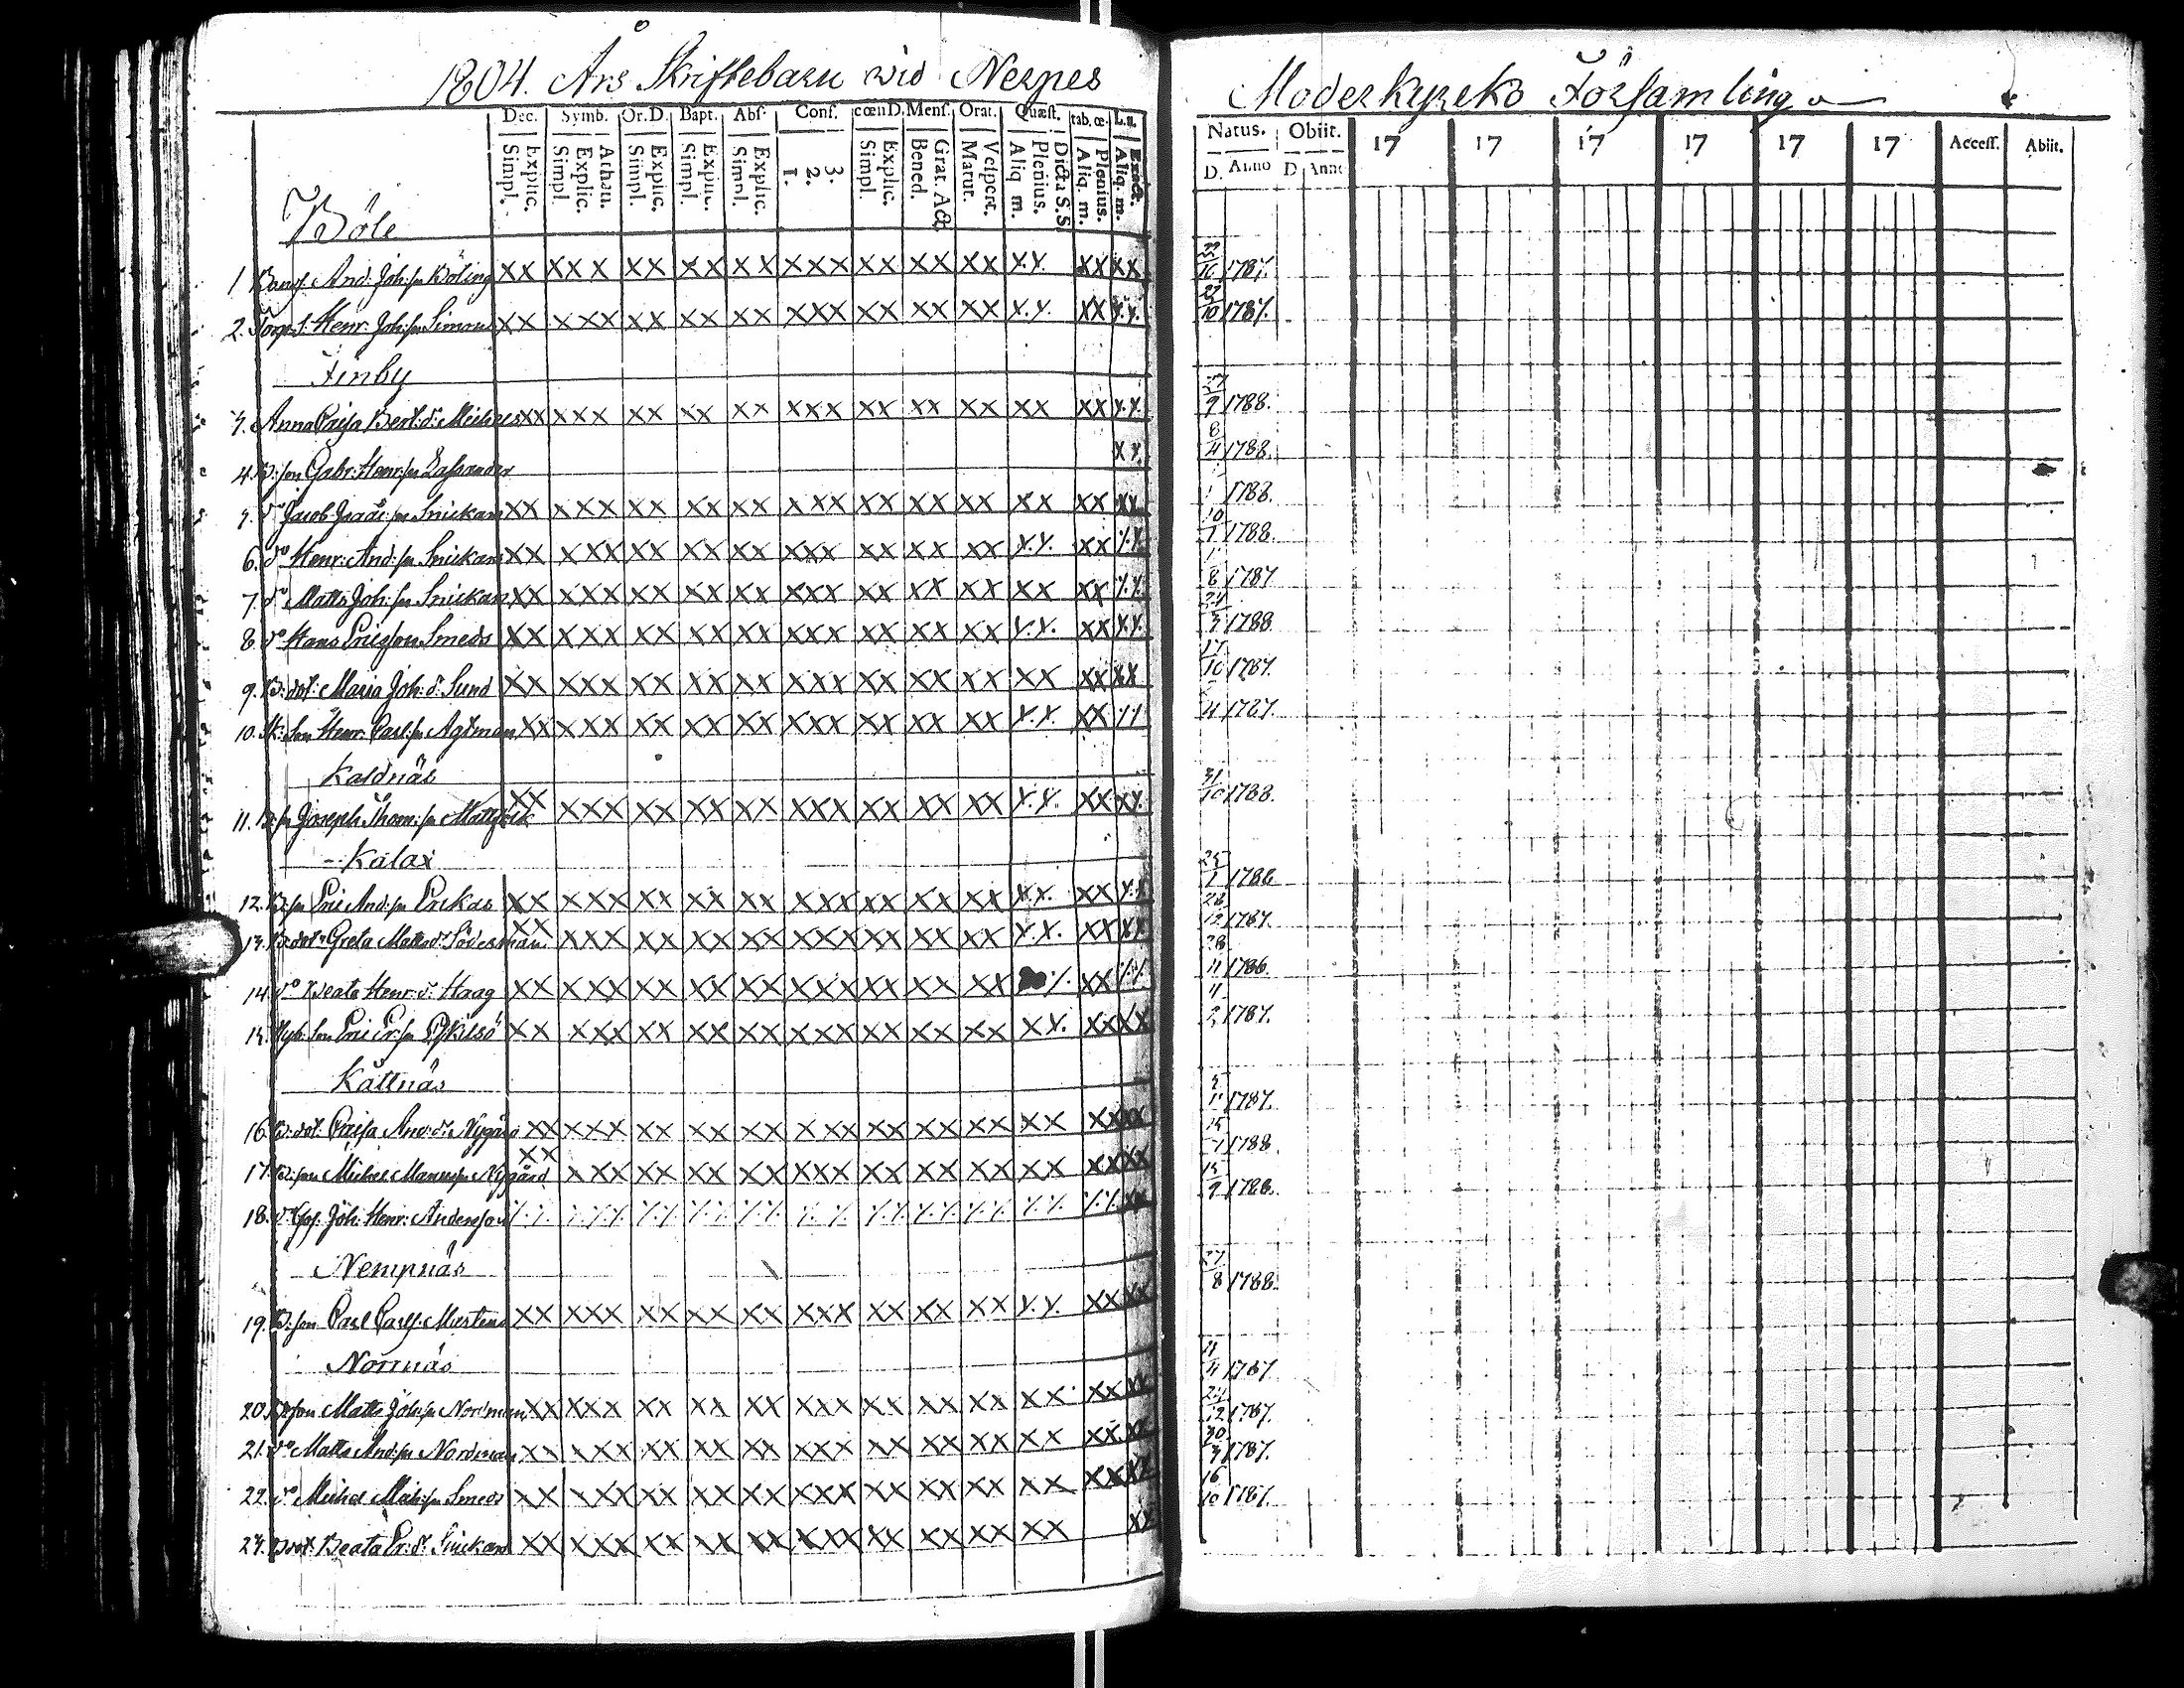 1804. Års Skriftebarn wid Nerpes
Moderkyrko Församling
Dec. Symb. Or.D. Bapt. Abs. Conf. cœnD. Mens. Orat. Quæst. tab.œ. L.n.
Explic. Simpl. Athan. Explic. Simpl. Explic. Simpl. Explic. Simpl. Explic. Simpl. 3. 2. 1. Explic. Simpl. Grat. Act. Bened. Vespert. Matut. Dicta S.S. Plenius. Aliq. m. Plenius. Aliq. m. Exact. Aliq. m.
Natus. Obiit. 17 17 17 17 17 17 Access. Abiit.
D. Anno D. Anno
Böle
1 And: Joh:sn Böling XX XXX XX XX XX XXX XX XX XX X.X. XX XX 1787.
2. Henr: Joh:sn Simons XX XXX XX XX XX XXX XX XX XX X.X. XX X.X. 1787.
Finby
3. Anna Caisa Bert:d: Michels XX XXX XX XX XX XXX XX XX XX XX XX X.X. 9 1788.
4. B:son Gabr: Henr:sn XX 8/4 1788.
5. do Jacob Isaacs:sn Snickars XX XXX XX XX XX XXX XX XX XX XX XX XX 1788.
6. do Henr: And:sn Snickars XX XXX XX XX XX XXX XX XX XX X.X. XX X.X. 1788.
7. do Matts Joh:sn Snickars XX XXX XX XX XX XXX XX XX XX XX XX X.X. 8 1787
8. do Hans Ericsson Smeds XX XXX XX XX XX XXX XX XX XX X.X. XX X.X. 1788.
9. B:dot: Maria Joh:d: Sund XX XXX XX XX XX XXX XX XX XX XX XX XX 17/10 1787.
10. Henr: Carl:sn Agtman XX XXX XX XX XX XXX XX XX XX X.X. XX 4 1787.
Kaldnäs
11. B:sn Joseph Thom:sn XX XXX XX XX XX XXX XX XX XX X.X. XX XX 31/10 1788.
Kalax
12. B:sn Eric And:sn XX XXX XX XX XX XXX XX XX XX X.X. XX X.X.
13. B:dot: Greta Matts d: Söderman XX XXX XX XX XX XXX XX XX XX X.X. XX XX 1787.
14. do Beata Henr:d: Haag XX XXX XX XX XX XXX XX XX XX XX 28/11 1786.
15. Eric Er:sn XX XXX XX XX XX XXX XX XX XX XX. XX XX 1787.
Kåttnäs
16. B:dot: Caisa And:d: Nygård XX XXX XX XX XX XXX XX XX XX XX XX XX 1787.
17. B:son Michel Nygård XX XXX XX XX XX XXX XX XX XX XX XX XX 1788
18. Joh: Henr: Andersson 9
Nempnäs
19. B:son Carl Carls: Mårtens XX XXX XX XX XX XXX XX XX XX X.X. XX XX 27/8 1788.
Norrnäs
20. B:son Matts Joh:sn Nordman XX XXX XX XX XX XXX XX XX XX XX XX XX 4 1787
21. do Matts And:sn Nordman XX XXX XX XX XX XXX XX XX XX XX XX XX 24/12 1787.
22. do Michel Mich:sn Smeds XX XXX XX XX XX XXX XX XX XX XX XX XX 30/3 1787.
23. B:dot: Beata Er:d: Snickars XX XXX XX XX XX XXX XX XX XX XX XX 16/10 1787.